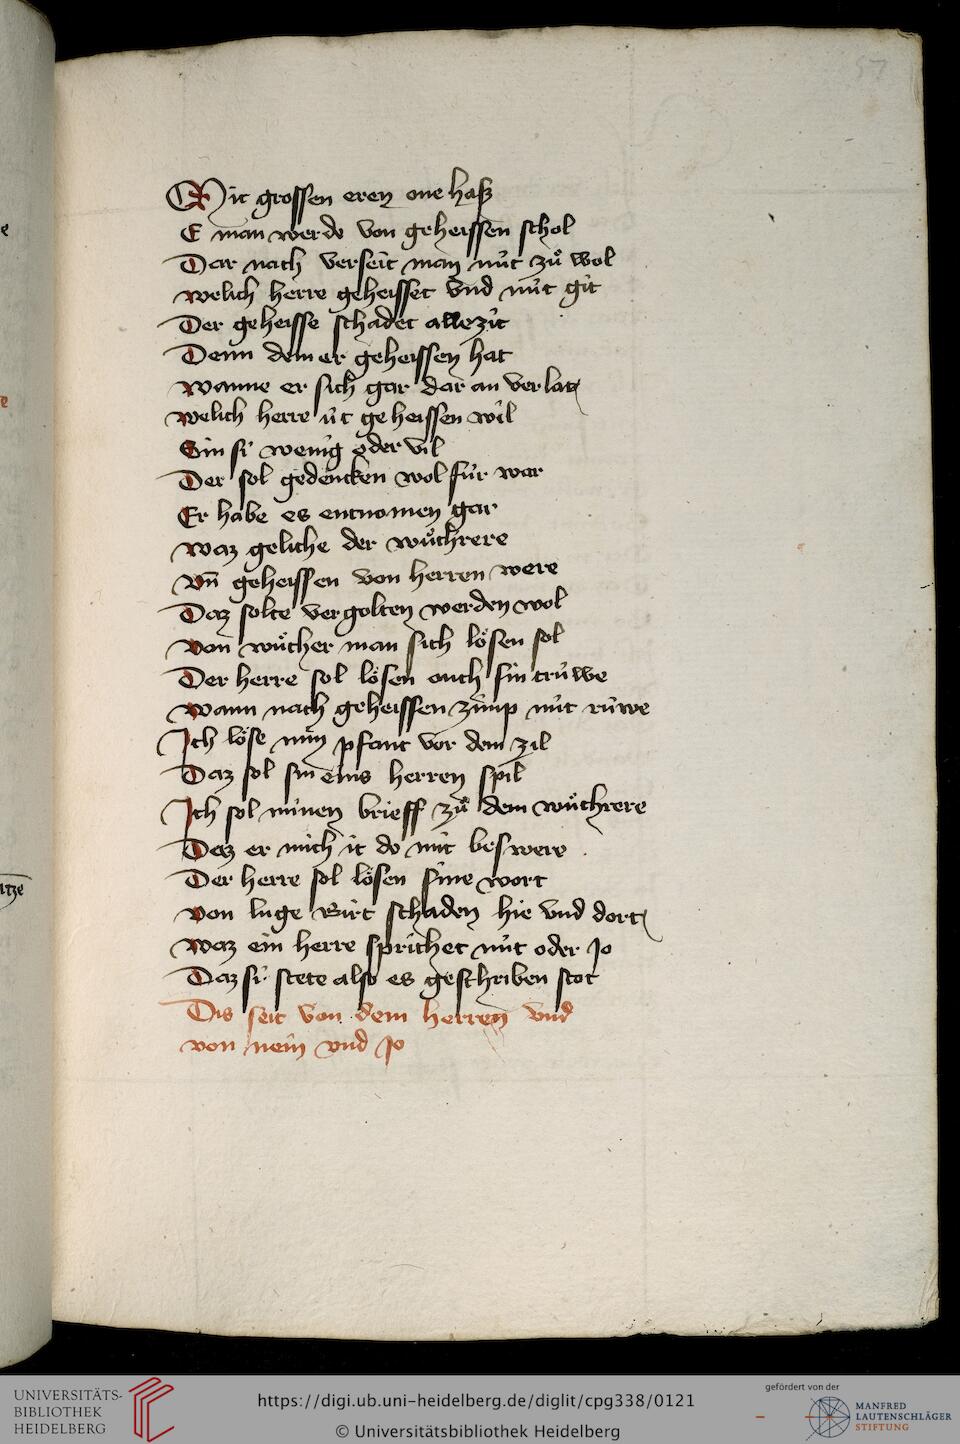 57
Mit grossen eren one hasz
E man werde von geheissen schol
Dar nach verseit man nüt zů wol
welich herre geheisset vnd nüt git
Der geheisse schadet allezit
Denn dem er geheissen hat
wanne er sich gar dar an verlat
welich herre üt geheissen wil
Sin si wenig oder vil
Der sol gedencken wol für war
Er habe es entnomen gar
waz geliche der wůchrere
vn̄ geheissen von herren were
Daz solte vergolten werden wol
von wůcher man sich lösen sol
Der herre sol lösen ouch sin trüwe
wann nach geheissen zimp nüt rüwe
Ich löse min pfant vor dem zil
Daz sol sin eins herren spil
Ich sol minen brieff zů dem wůchrere
Daz er mich it do mit beswere
Der herre sol lösen sine wort
von luge birt schaden hie vnd dort
waz ein herre sprichet nüt oder Jo
Daz si stete also es geschriben stot
Dis seit von dem herren vnd
von nein vnd Jo
UNIVERSITÄTS-
BIBLIOTHEK
HEIDELBERG
https://digi.ub.uni-heidelberg.de/diglit/cpg338/0121
© Universitätsbibliothek Heidelberg
gefördert von der
MANFRED
LAUTENSCHLÄGER
STIFTUNG